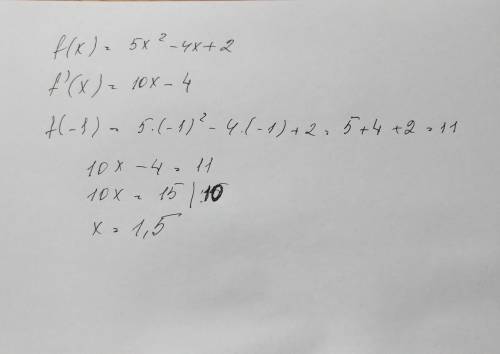 f(x) = 5x² - 4x + 2
f'(x) = 10x - 4
f(-1) = 5·(-1)² - 4·(-1) + 2 = 5 + 4 + 2 = 11
10x - 4 = 11
10x = 15 | :10
x = 1,5